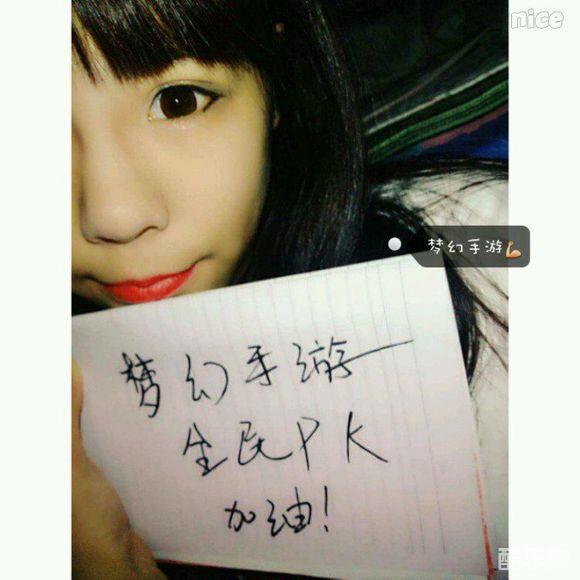 nice
梦幻手游💪
梦幻手游
全民PK
加油!